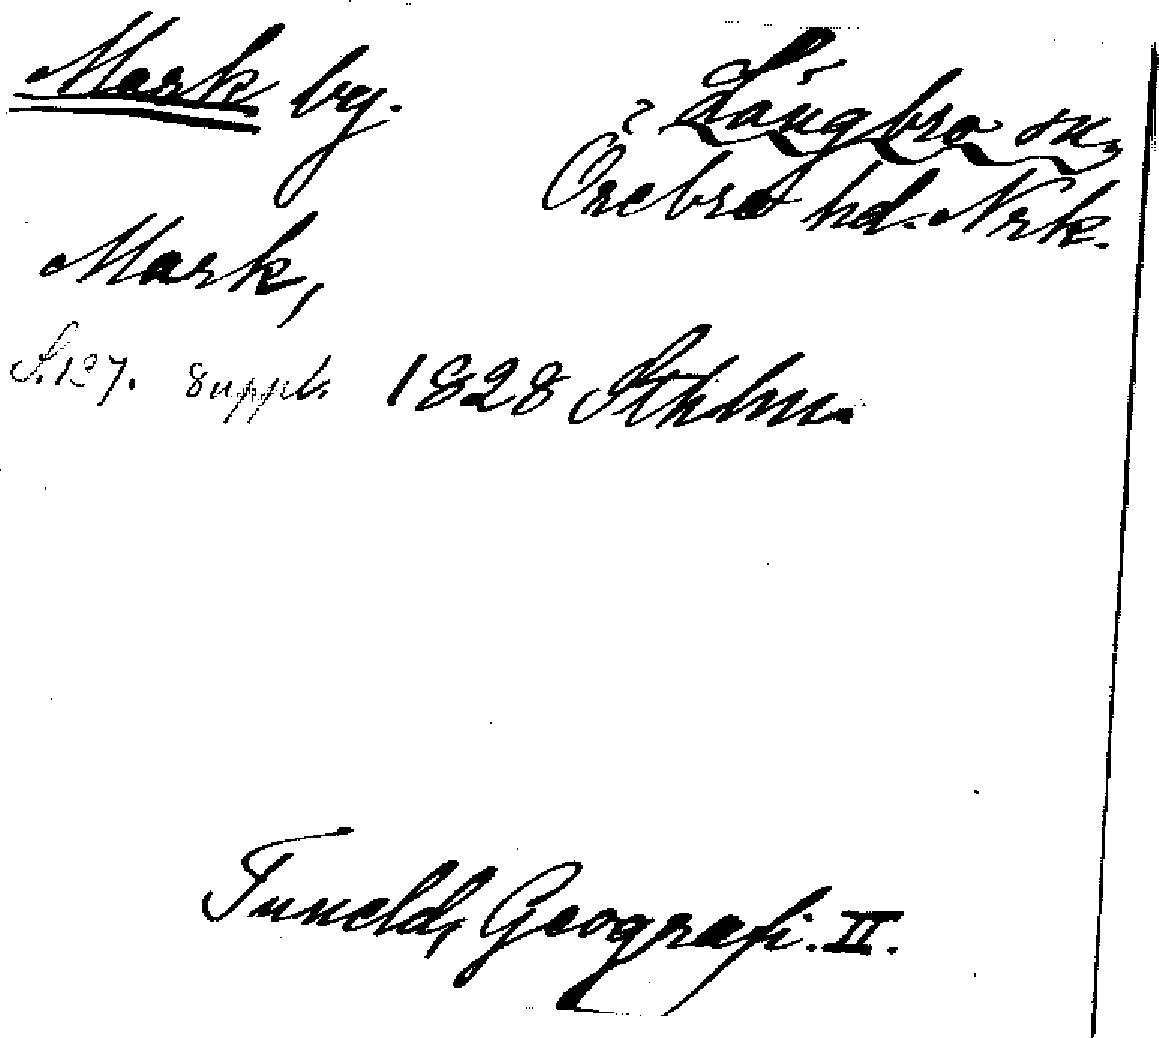 Mark by.
Långbro sn,
Örebro hd. Nrk.
Mark,
S. 127. suppl. 1828 Sthlm.
Tuneld, Geografi. II.